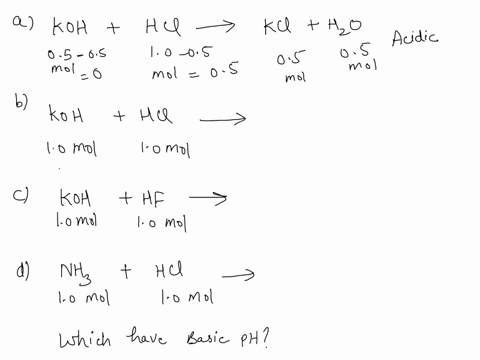 a) KOH + HCl → KCl + H₂O Acidic
0.5 - 0.5 1.0 - 0.5 0.5 0.5
mol = 0 mol = 0.5 mol mol
b) KOH + HCl →
1.0 mol 1.0 mol
c) KOH + HF →
1.0 mol 1.0 mol
d) NH₃ + HCl →
1.0 mol 1.0 mol
Which have Basic pH?